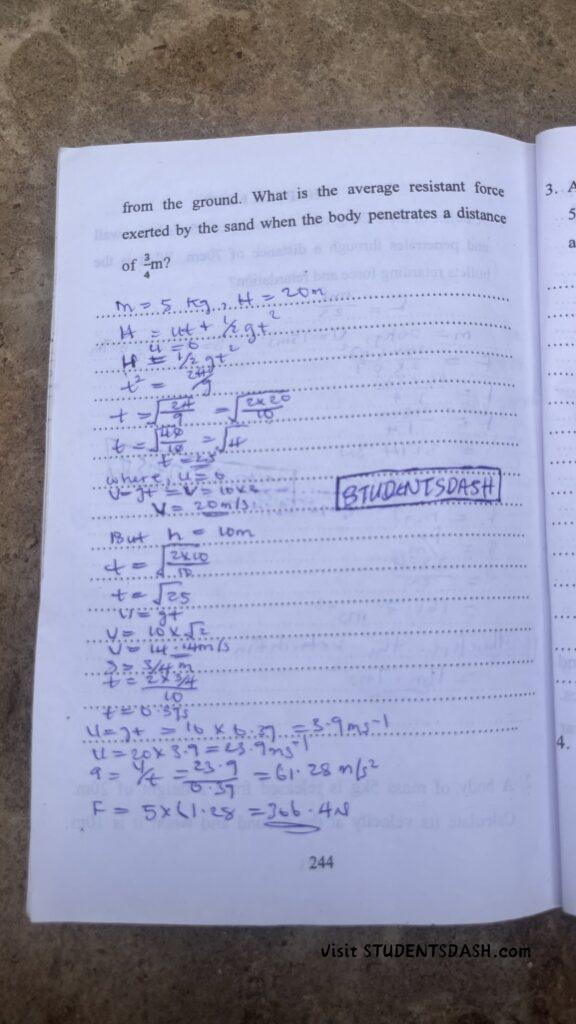 from the ground. What is the average resistant force
exerted by the sand when the body penetrates a distance
of 3/4 m?
m = 5 kg, H = 20m
H = ut + 1/2 gt²
u = 0
H = 1/2 gt²
t² = 2H/g
t = √2H/g = √2x20/10
t = √40/10 = √4
t = 2s
where, u = 0
V = gt = V = 10x2
V = 20m/s
STUDENTSDASH
But h = 10m
t = √2x10/10
t = √2s
V = gt
V = 10 x √2
V = 14.14m/s
S = 3/4 m
t = 2 x 3/4/10
t = 0.39s
U = gt = 10 x 0.39 = 3.9ms⁻¹
U = 20 x 3.9 = 23.9ms⁻¹
a = u/t = 23.9/0.39 = 61.28 m/s²
F = 5 x 61.28 = 366.4N
244
3. A
5
a
4.
Visit STUDENTSDASH.com